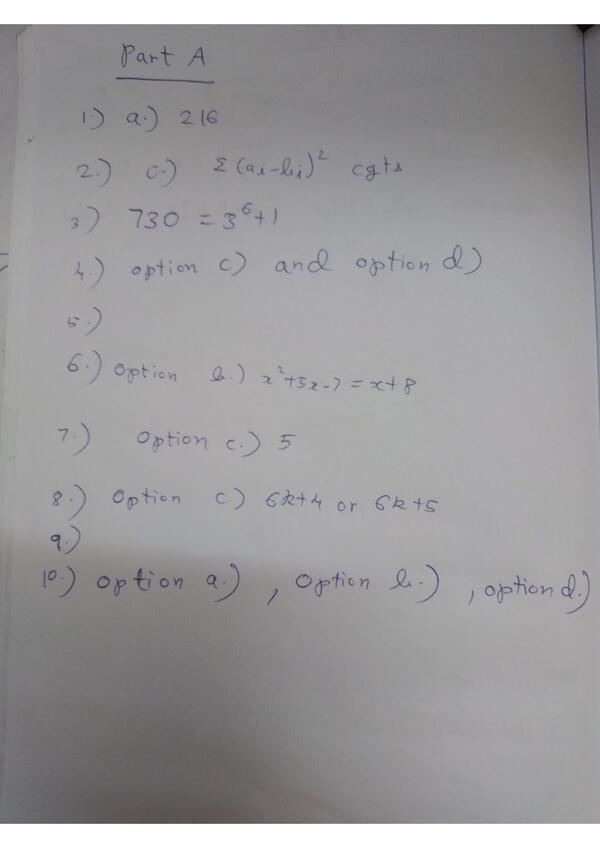 Part A
1.) a.) 216
2.) c.) Σ(ai-bi)² cgts
3.) 730 = 3⁶+1
4.) option c) and option d)
5.)
6.) option b.) x²+5x-7 = x+8
7.) option c.) 5
8.) option c.) 6k+4 or 6k+5
9.)
10.) option a.) , option b.) , option d.)